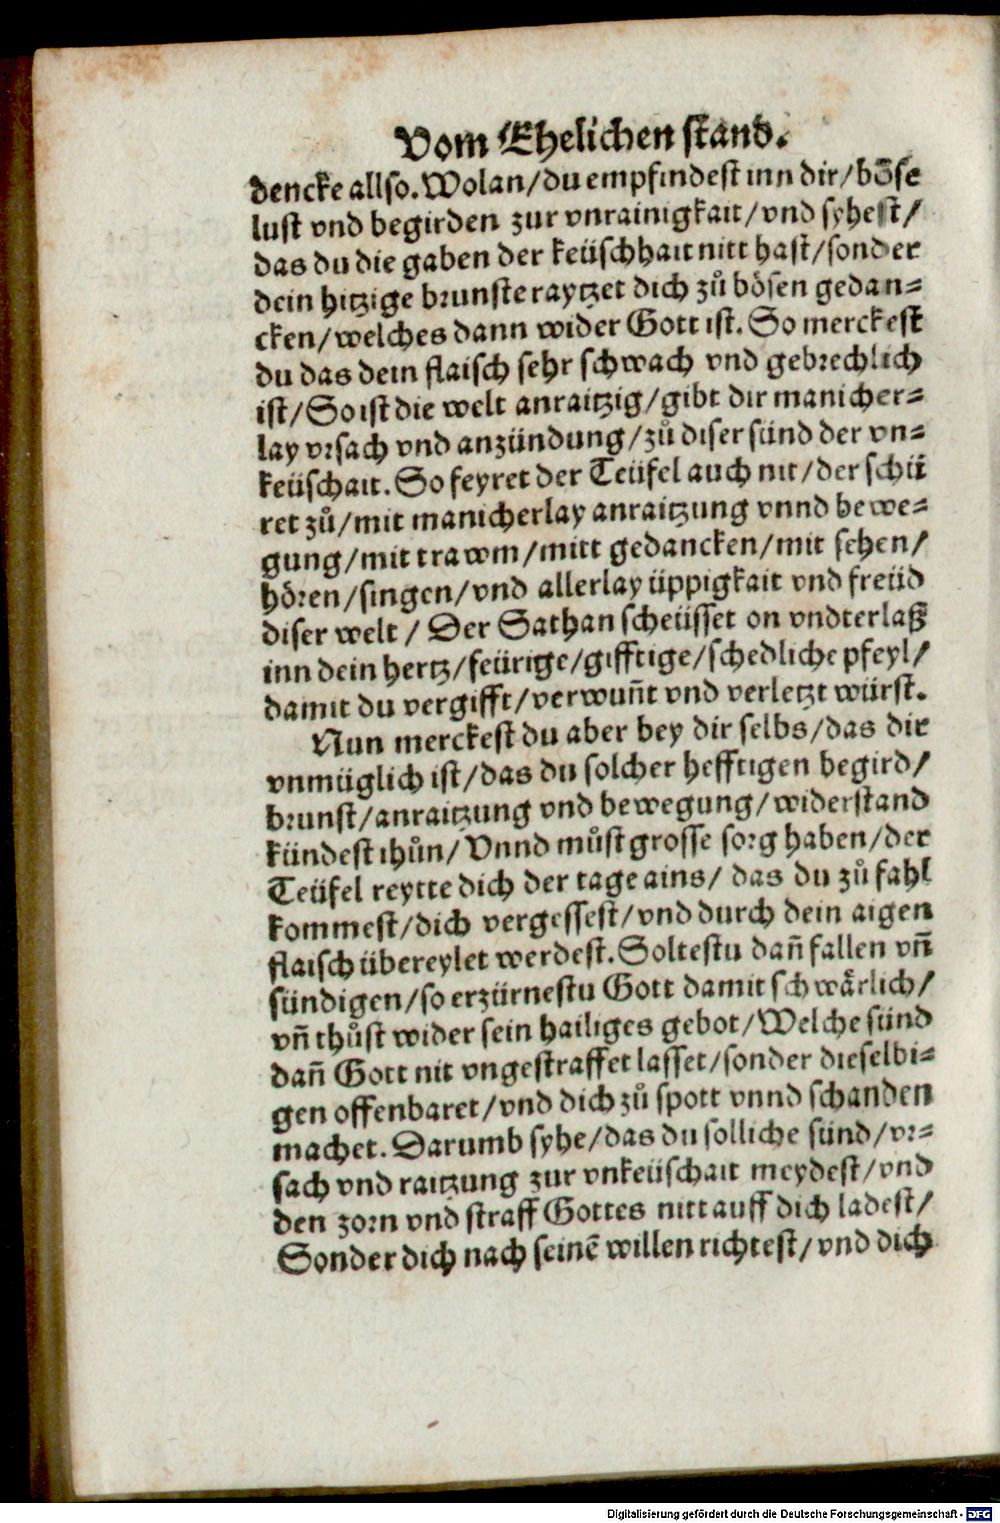 Vom Ehelichen stand.
dencke allso. Wolan/du empfindest inn dir/böse
lust vnd begirden zur vnrainigkait/vnd syhest/
das du die gaben der keüschhait nitt hast/sonder
dein hitzige brunste raytzet dich zů bösen gedan=
cken/welches dann wider Gott ist. So merckest
du das dein flaisch sehr schwach vnd gebrechlich
ist/So ist die welt anraitzig/gibt dir manicher=
lay vrsach vnd anzündung/zů diser sünd der vn=
keüschait. So feyret der Teüfel auch nit/der schü
ret zů/mit manicherlay anraitzung vnnd bewe=
gung/mit trawm/mitt gedancken/mit sehen/
hören/singen/vnd allerlay üppigkait vnd freüd
diser welt/ Der Sathan scheüsset on vndterlaß
inn dein hertz/feürige/gifftige/schedliche pfeyl/
damit du vergifft/verwun̄t vnd verletzt würst.
Nun merckest du aber bey dir selbs/das dir
vnmüglich ist/das du solcher hefftigen begird/
brunst/anraitzung vnd bewegung/widerstand
kündest thůn/ Vnnd můst grosse sorg haben/der
Teüfel reytte dich der tage ains/ das du zů fahl
kommest/dich vergessest/vnd durch dein aigen
flaisch übereylet werdest. Soltestu dan̄ fallen vn̄
sündigen/so erzürnestu Gott damit schwärlich/
vn̄ thůst wider sein hailiges gebot/Welche sünd
dan̄ Gott nit vngestraffet lasset/sonder dieselbi=
gen offenbaret/vnd dich zů spott vnnd schanden
machet. Darumb syhe/das du solliche sünd/vr=
sach vnd raitzung zur vnkeüschait meydest/vnd
den zorn vnd straff Gottes nitt auff dich ladest/
Sonder dich nach seinē willen richtest/vnd dich
Digitalisierung gefördert durch die Deutsche Forschungsgemeinschaft - DFG